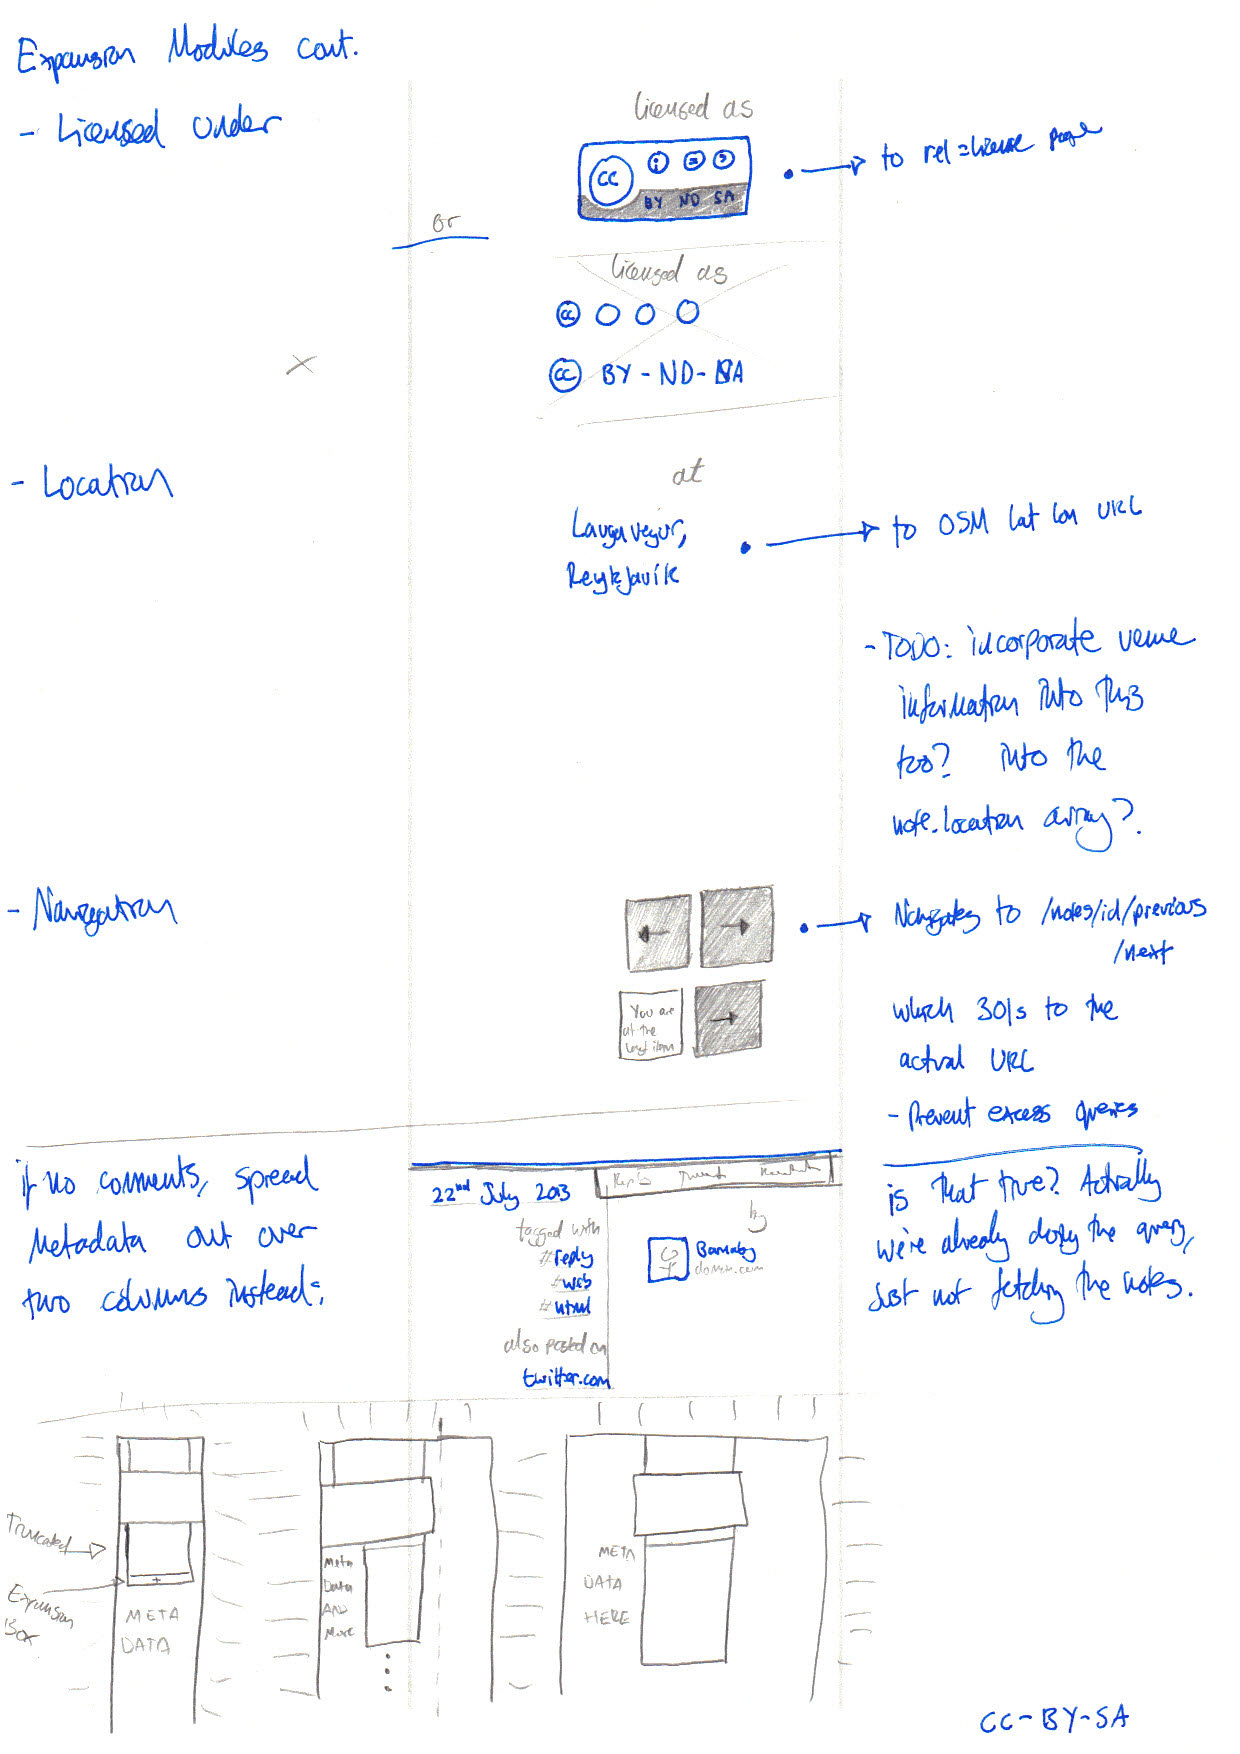 Expansion Modules cont.
- Licensed under
licensed as
cc
BY ND SA
to rel=license page
or
licensed as
cc
cc BY-ND-SA
- Location
at
Laugavegur,
Reykjavik
to OSM lat lon URL
- TODO: incorporate venue
information into this
too? into the
note.location array?
- Navigation
Navigates to /notes/id/previous
/next
You are
at the
last item
which 301s to the
actual URL
- Prevent excess queries
is that true? Actually
we're already doing the query,
just not fetching the notes.
if no comments, spread
Metadata out over
two columns instead:
22nd July 2013
tagged with
#reply
#web
#html
also posted on
twitter.com
by
Barnaby
domain.com
Truncated
Expansion
Box
+
META
DATA
Meta
Data
AND
More
META
DATA
HERE
CC-BY-SA